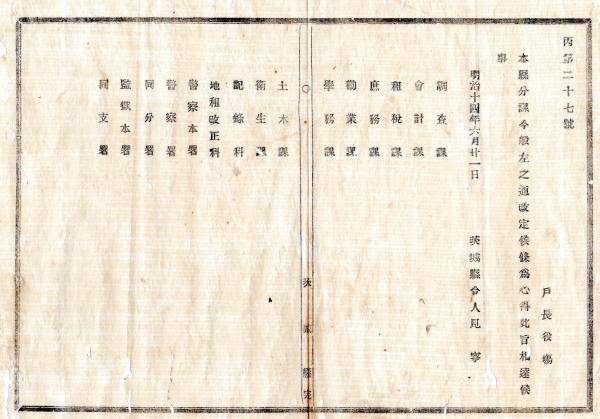 丙第二十七號
戸長役塲
本縣分課今般左之通改定候條爲心得此旨相達候
事
明治十四年六月廿一日
茨城縣令人見寧
調査課
會計課
租税課
庶務課
勸業課
學務課
土木課
衛生課
記錄科
地租改正科
警察本署
警察署
同分署
監獄本署
同支署
茨城縣